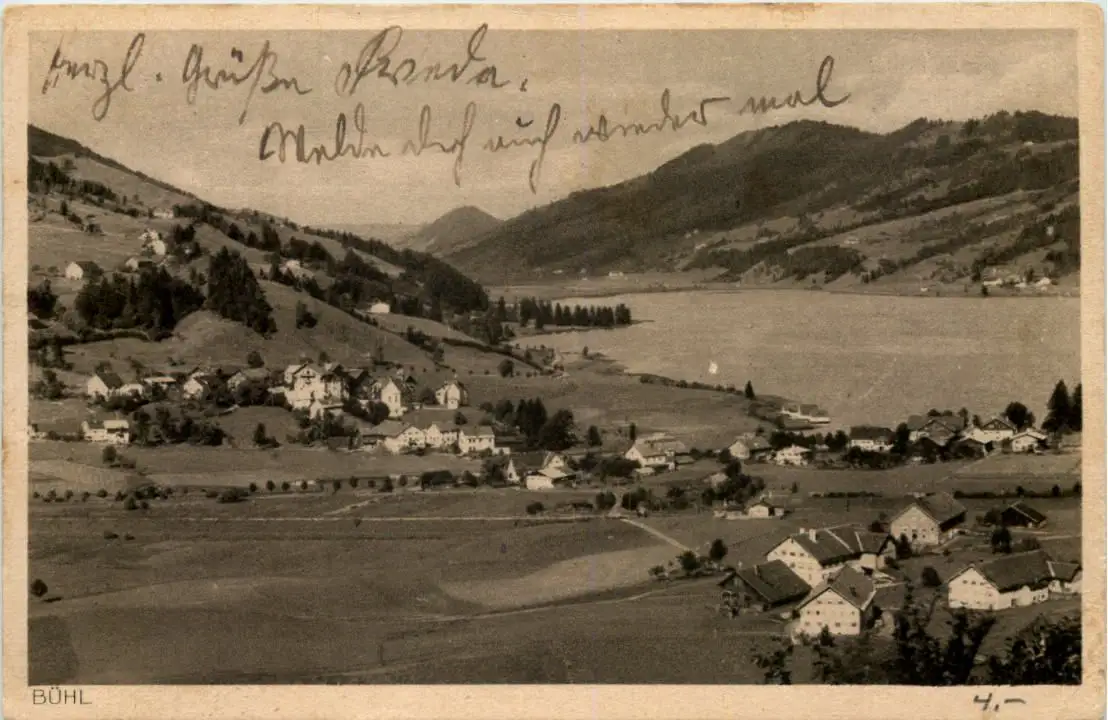 herzl. Grüße Freda.
Melde dich auch wieder mal
BÜHL
4,-